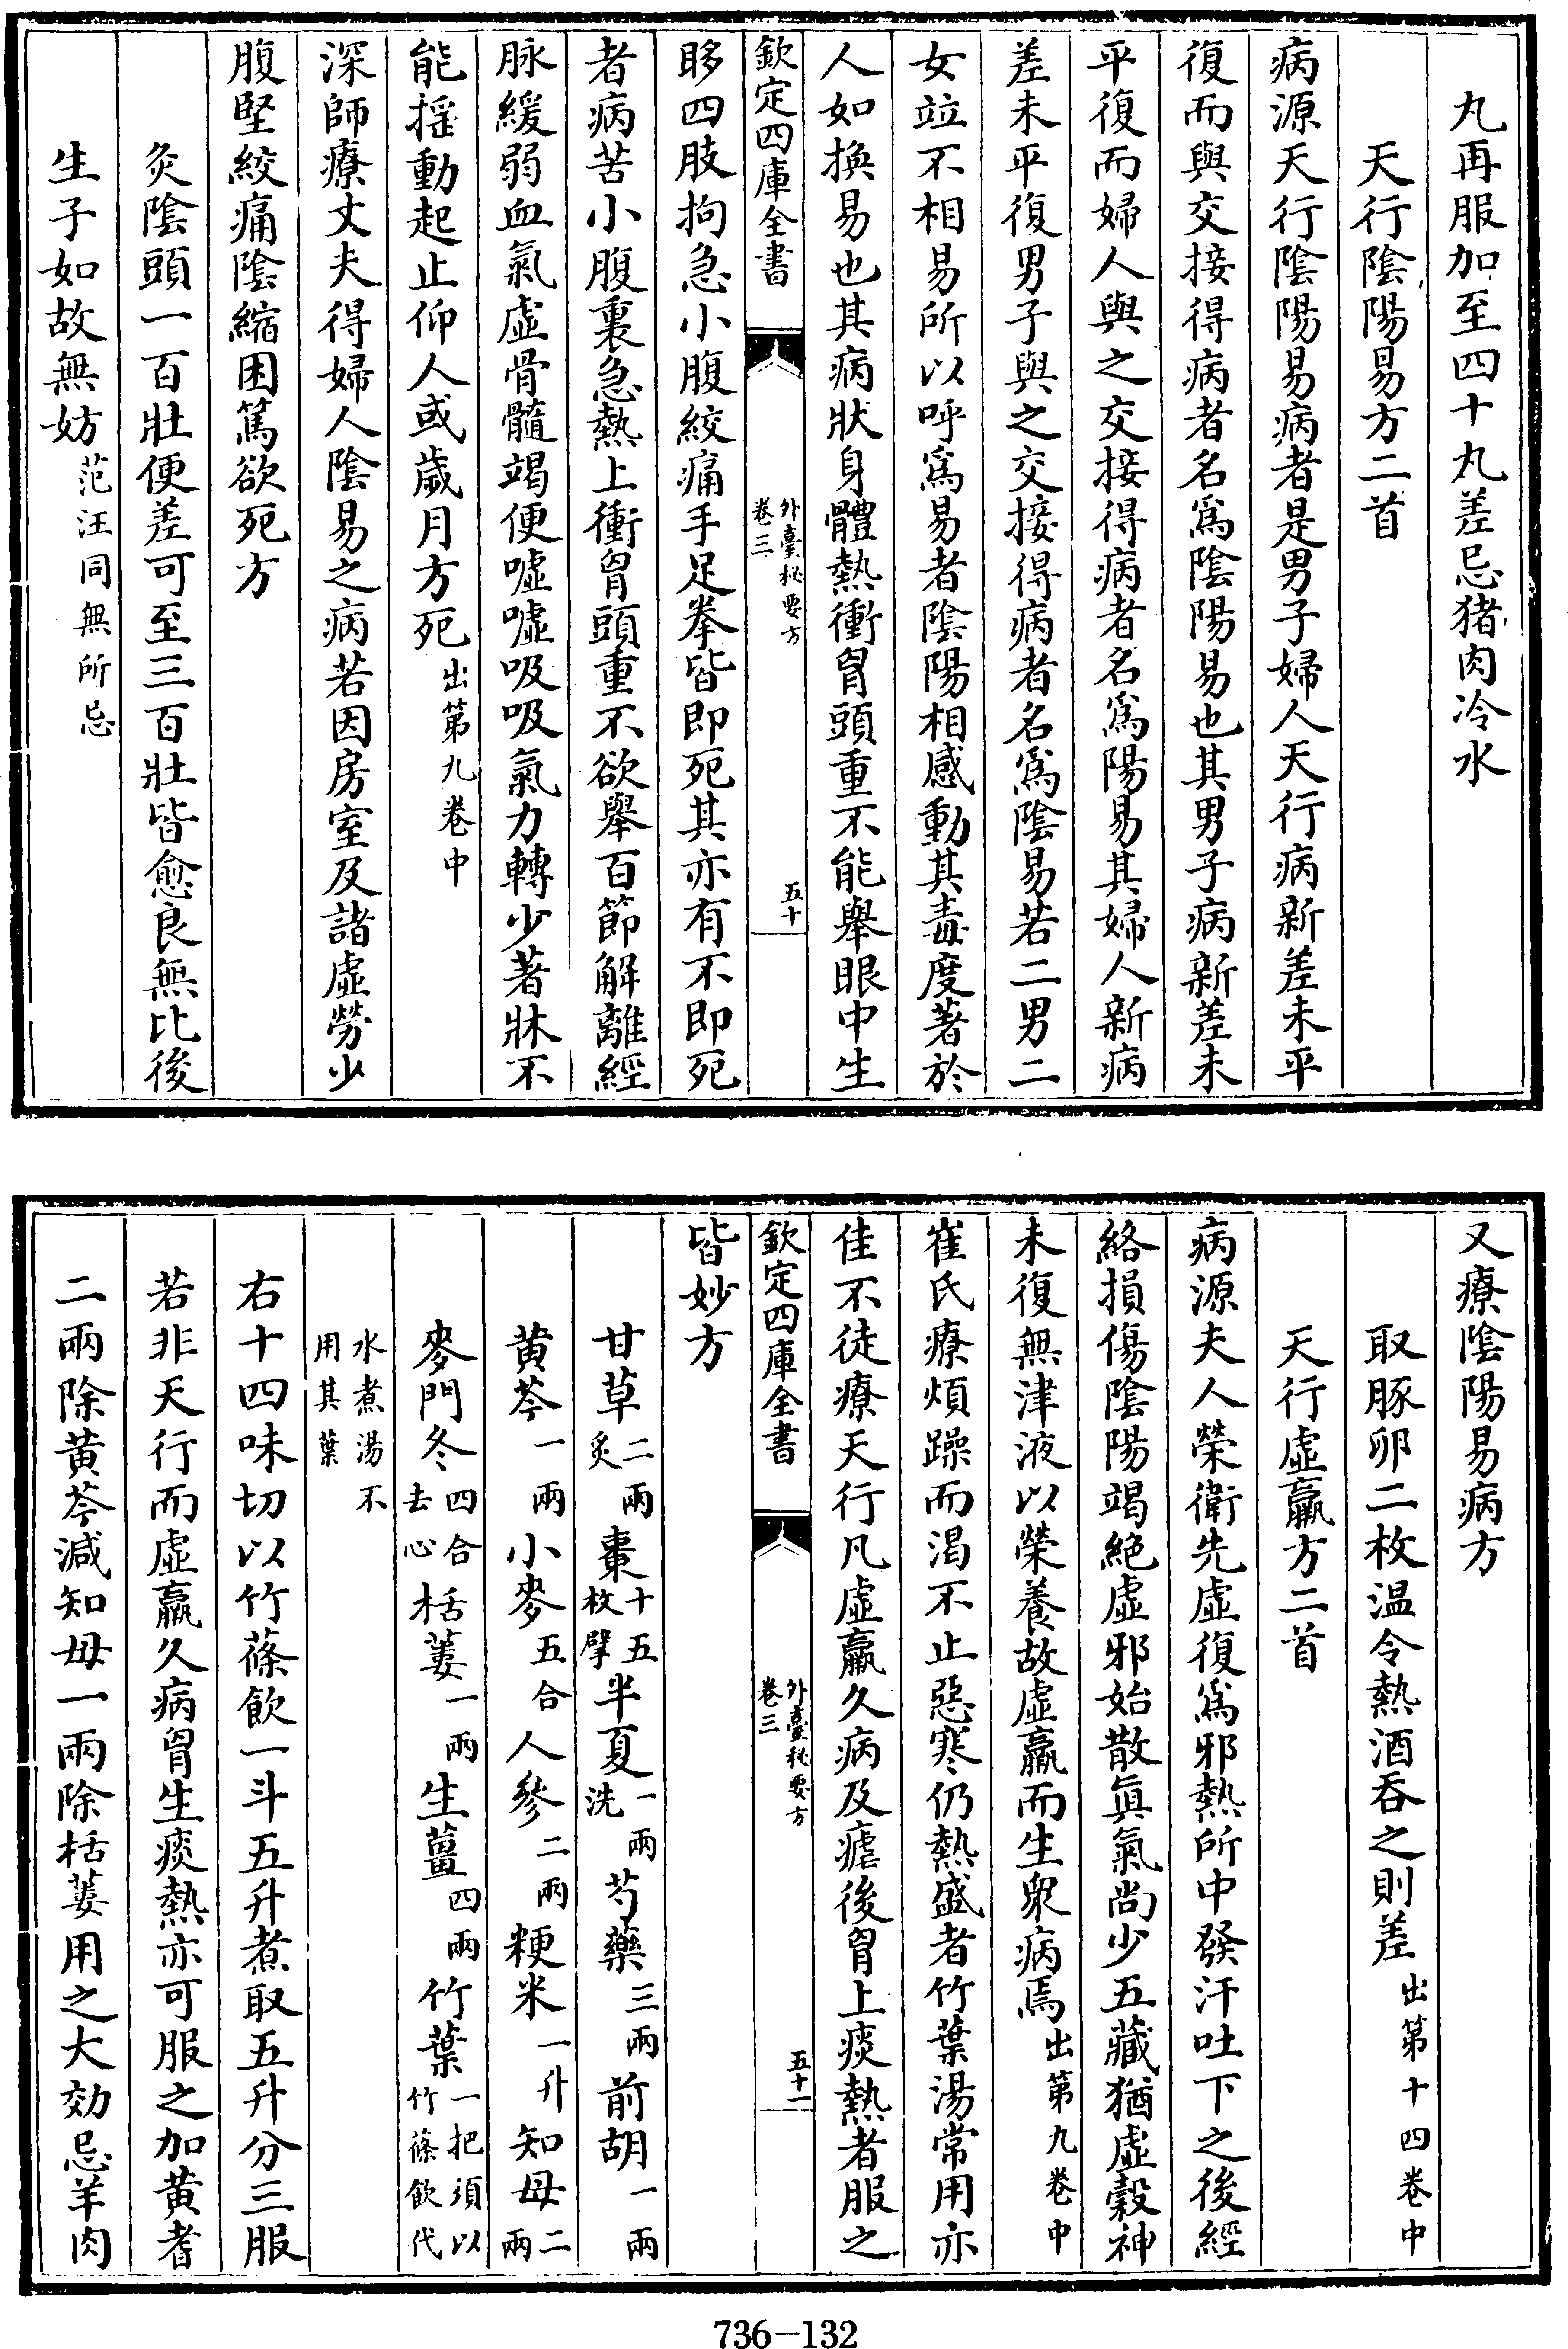 丸再服加至四十丸差忌猪肉冷水
天行陰陽易方二首
病源天行陰陽易病者是男子婦人天行病新差未平
復而與交接得病者名爲陰陽易也其男子病新差未
平復而婦人與之交接得病者名爲陽易其婦人新病
差未平復男子與之交接得病者名爲陰易若二男二
女竝不相易所以呼爲易者陰陽相感動其毒度著於
人如換易也其病狀身體熱衝胷頭重不能舉眼中生
欽定四庫全書
外臺秘要方
卷三
五十
眵四肢拘急小腹絞痛手足拳皆即死其亦有不即死
者病苦小腹裏急熱上衝胷頭重不欲舉百節解離經
脉緩弱血氣虛骨髓竭便噓噓吸吸氣力轉少著牀不
能揺動起止仰人或歲月方死出第九卷中
深師療丈夫得婦人陰易之病若因房室及諸虛勞少
腹堅絞痛陰縮困篤欲死方
灸陰頭一百壯便差可至三百壯皆愈良無比後
生子如故無妨范汪同無所忌
又療陰陽易病方
取豚卵二枚温令熱酒吞之則差出第十四卷中
天行虛羸方二首
病源夫人榮衛先虛復爲邪熱所中發汗吐下之後經
絡損傷陰陽竭絶虛邪始散真氣尚少五藏猶虛穀神
未復無津液以榮養故虛羸而生衆病焉出第九卷中
崔氏療煩躁而渴不止惡寒仍熱盛者竹葉湯常用亦
佳不徒療天行凡虛羸久病及瘧後胷上痰熱者服之
欽定四庫全書
外臺秘要方
卷三
五十一
皆妙方
甘草二兩炙棗十五枚擘半夏一兩洗芍藥三兩前胡一兩
黄芩一兩小麥五合人參二兩粳米一升知母二兩
麥門冬四合去心栝蔞一兩生薑四兩竹葉一把須以竹篠飲代
水煮湯不用其葉
右十四味切以竹篠飲一斗五升煮取五升分三服
若非天行而虛羸久病胷生痰熱亦可服之加黄耆
二兩除黄芩減知母一兩除栝蔞用之大効忌羊肉
736-132